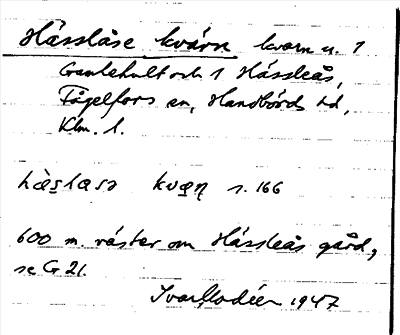 Hässlåse kvärn kvarn u. 1
Gamlehult och 1 Hässleås,
Fågelfors sn, Handbörds hd,
Klm. l.
kvæɳ s. 166
600 m. väster om Hässleås gård,
se G 21.
Ivar Modéer 1947